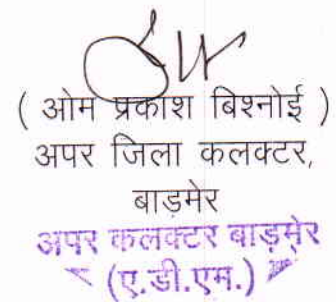 ( ओम प्रकाश बिश्नोई )
अपर जिला कलक्टर,
बाड़मेर
अपर कलक्टर बाड़मेर
(ए.डी.एम.)